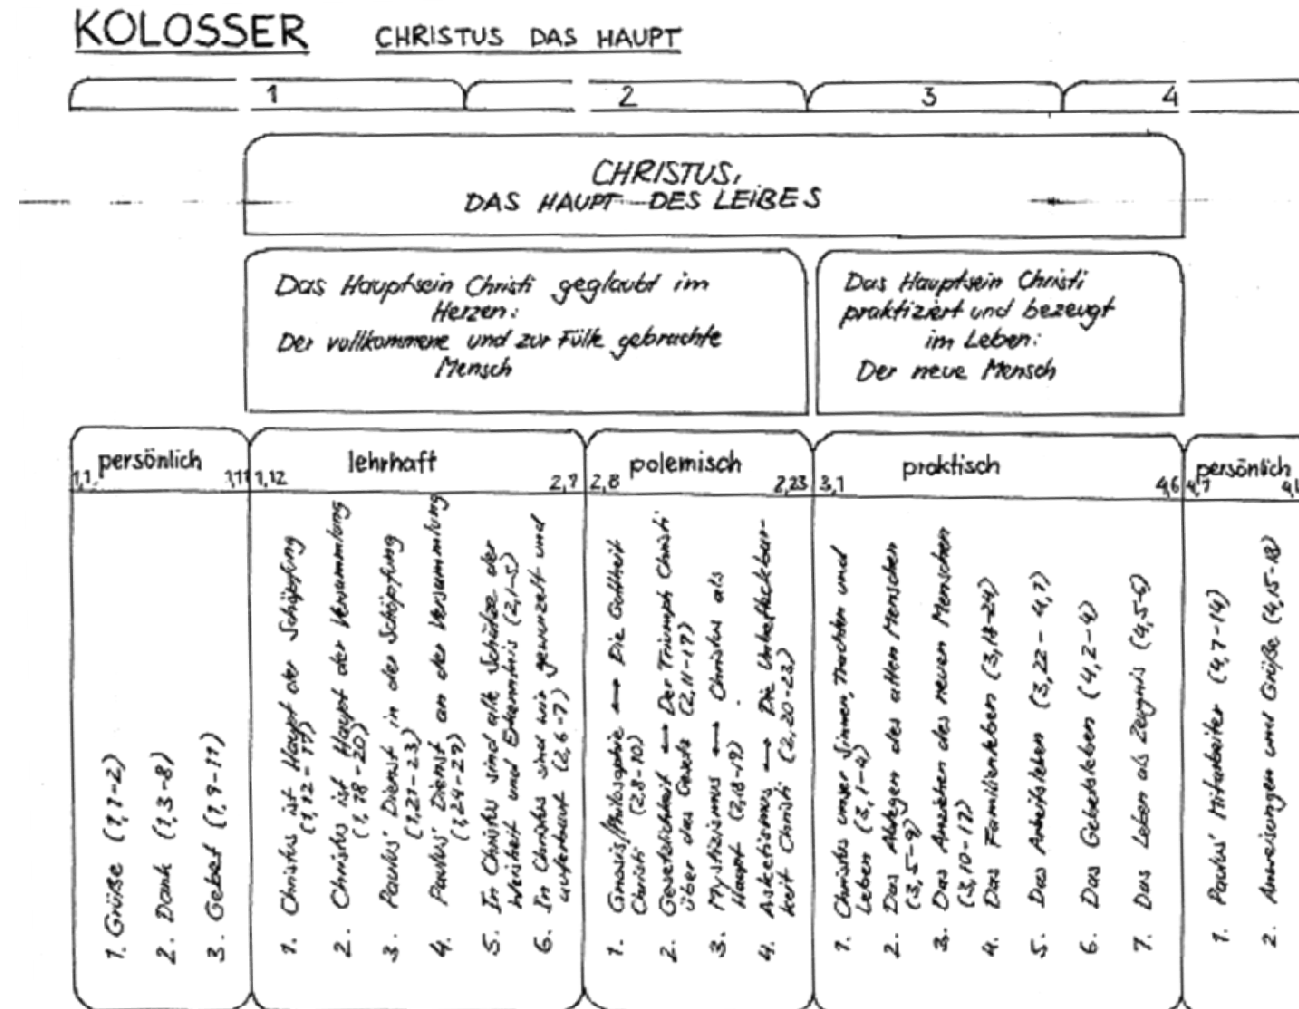 KOLOSSER CHRISTUS DAS HAUPT
1 2 3 4
CHRISTUS,
DAS HAUPT DES LEIBES
Das Hauptsein Christi geglaubt im
Herzen:
Der vollkommene und zur Fülle gebrachte
Mensch
Das Hauptsein Christi
praktiziert und bezeugt
im Leben:
Der neue Mensch
persönlich
1,1 1,11
1. Grüße (1,1-2)
2. Dank (1,3-8)
3. Gebet (1,9-11)
lehrhaft
1,12 2,7
1. Christus ist Haupt der Schöpfung
(1,12-17)
2. Christus ist Haupt der Versammlung
(1,18-20)
3. Paulus' Dienst in der Schöpfung
(1,21-23)
4. Paulus' Dienst an der Versammlung
(1,24-29)
5. In Christus sind alle Schätze der
Weisheit und Erkenntnis (2,1-5)
6. In Christus sind wir gewurzelt und
auferbaut (2,6-7)
polemisch
2,8 2,23
1. Gnosis/Philosophie ⟷ Die Gottheit
Christi (2,8-10)
2. Gesetzlichkeit ⟷ Der Triumph Christi
über das Gesetz (2,11-17)
3. Mystizismus ⟷ Christus als
Haupt (2,18-19)
4. Asketismus ⟷ Die Unbefleckbar-
keit Christi (2,20-23)
praktisch
3,1 4,6
1. Christus unser Sinnen, Trachten und
Leben (3,1-4)
2. Das Ablegen des alten Menschen
(3,5-9)
3. Das Anziehen des neuen Menschen
(3,10-17)
4. Das Familienleben (3,18-21)
5. Das Arbeitsleben (3,22-4,1)
6. Das Gebetsleben (4,2-4)
7. Das Leben als Zeugnis (4,5-6)
persönlich
4,7
1. Paulus' Mitarbeiter (4,7-14)
2. Anweisungen und Grüße (4,15-18)